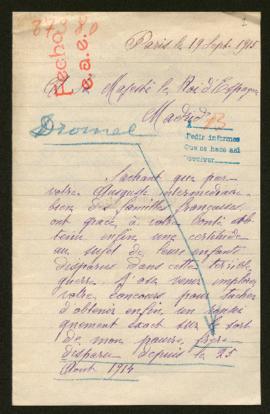 37380
Fecho
e.a.e.
Paris le 19 Sept. 1915
A Sa Majesté le Roi d'Espagne
Madrid
Pedir informes
Que se hace así
Dromel
Sachant que par
votre Auguste intermédiaire
bien des familles françaises
ont grâce à votre bonté ob
tenu enfin une certitude
au sujet de leurs enfants
disparus dans cette terrible
guerre. J'ose venir implorer
votre concours pour tâcher
d'obtenir enfin un rensei
gnement exact sur le sort
de mon pauvre frère
disparu depuis le 25
Août 1914